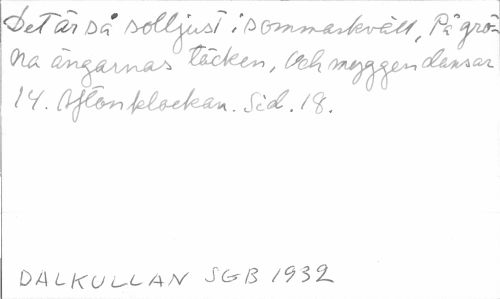 Det är så solljust i sommarkväll, På grö-
na ängarnas täcken, Och myggen dansar
14. Aftonklockan. Sid. 18.
DALKULLAN SGB 1932